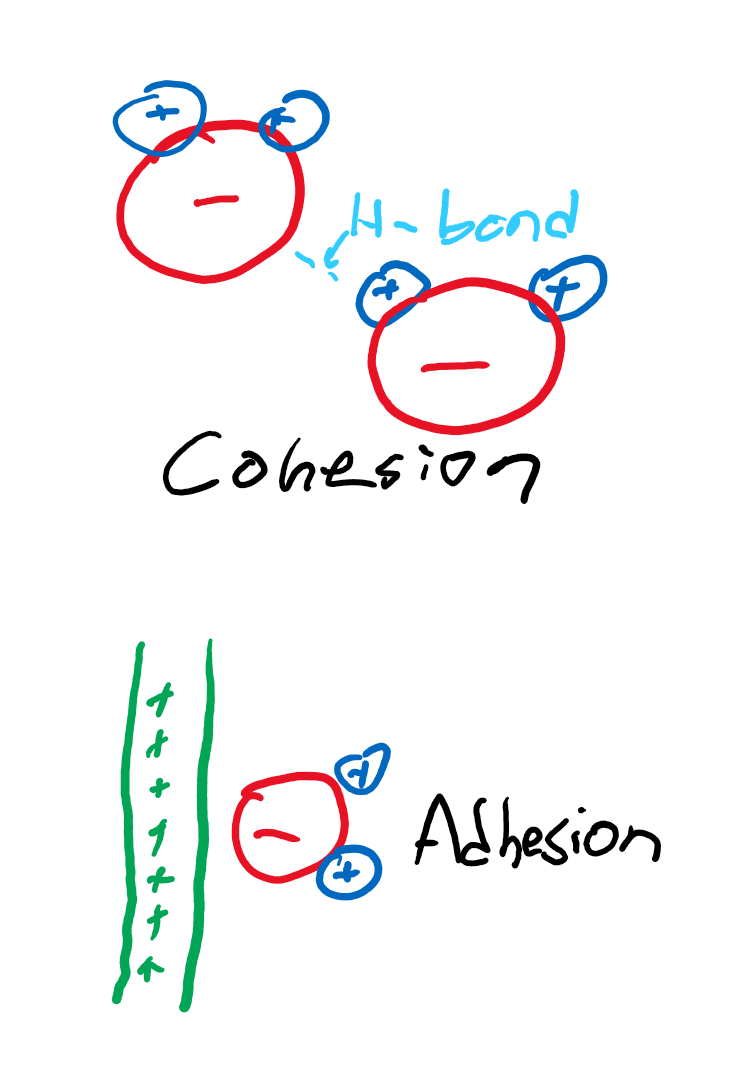 + +
−
H-bond
+ +
−
Cohesion
+
+
+
+
+
+
+
+
−
+
Adhesion